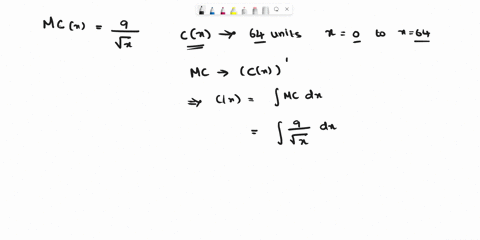 MC(x) = 9/√x
C(x) → 64 units x=0 to x=64
MC → (C(x))'
⇒ C(x) = ∫MC dx
= ∫ 9/√x dx